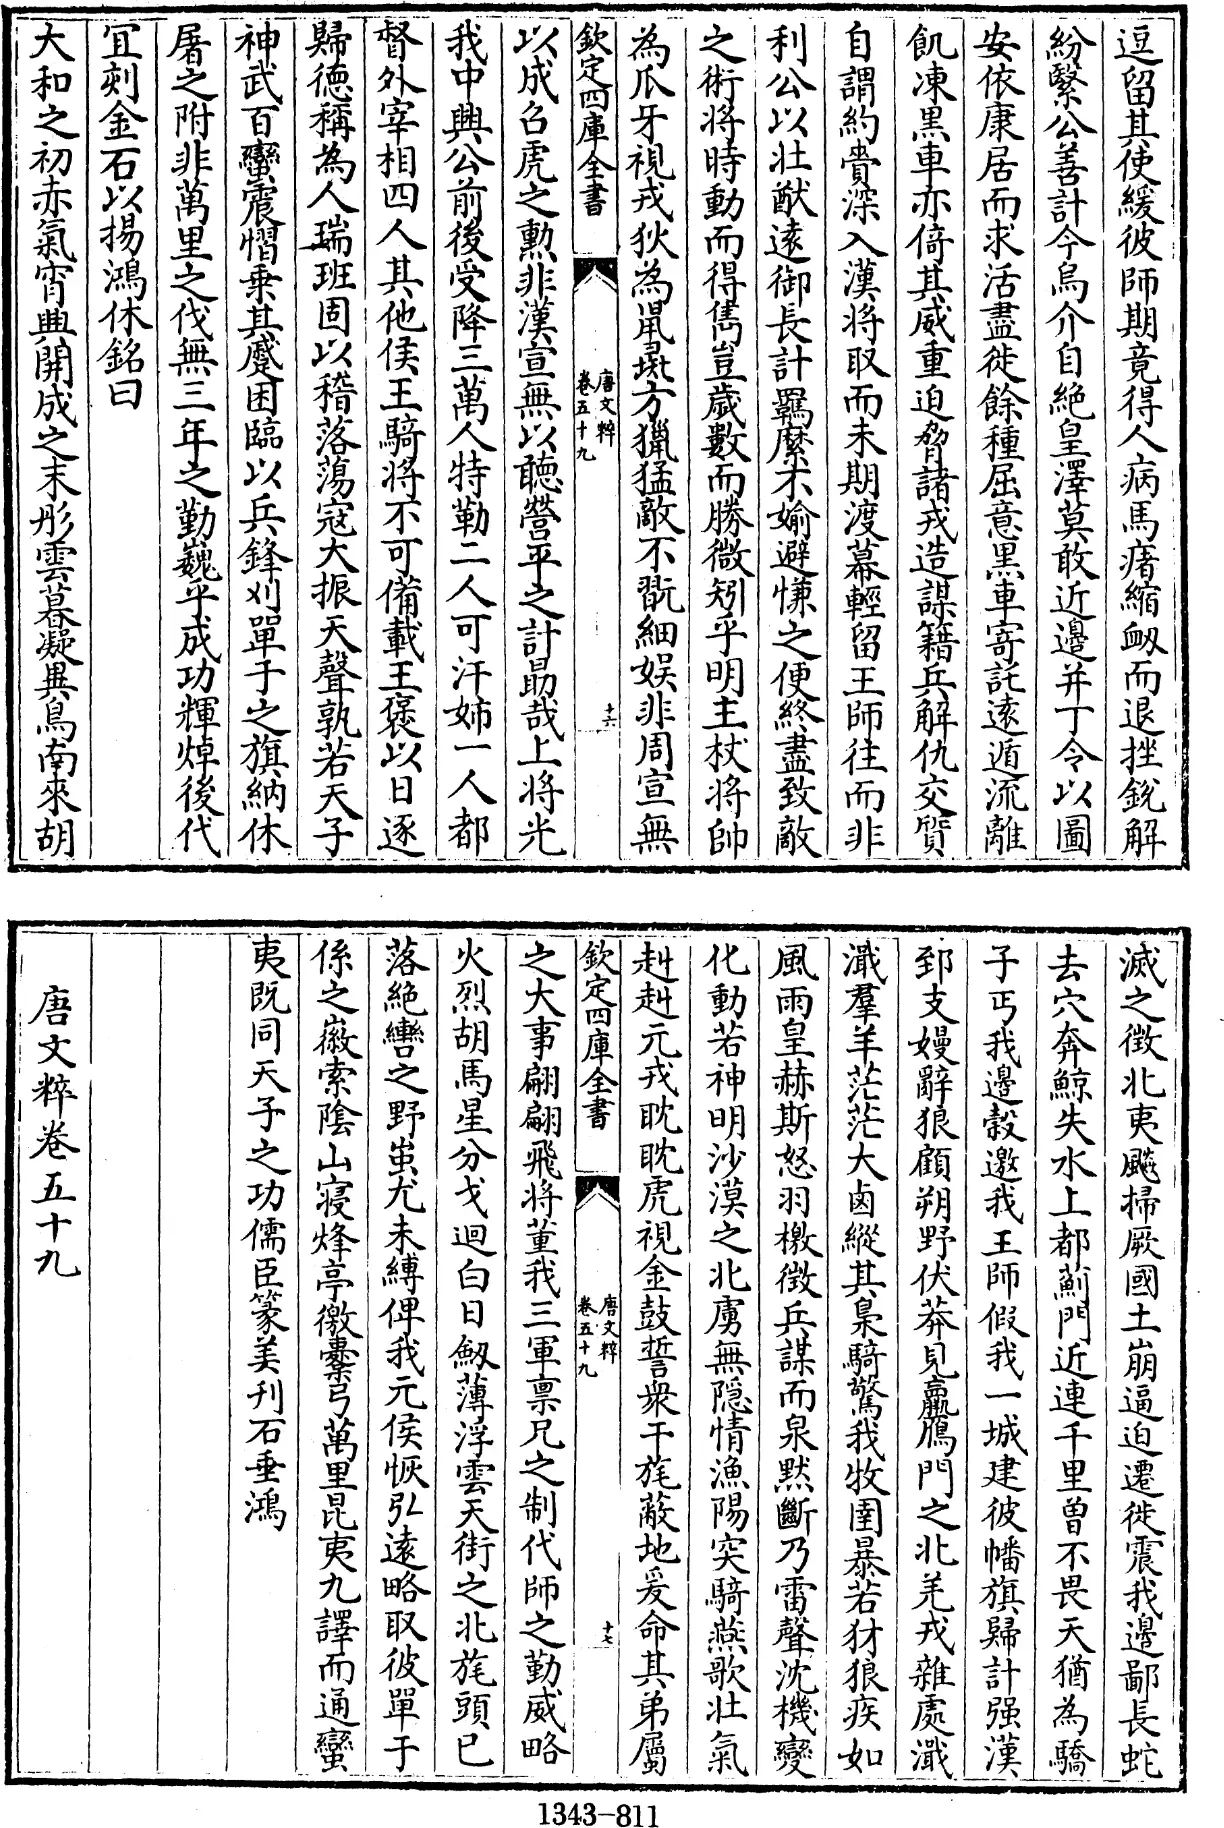 逗留其使緩彼師期竟得人病馬瘏縮衂而退挫銳解
紛繄公善計今烏介自絶皇澤莫敢近邊并丁令以圖
安依康居而求活盡徙餘種屈意黒車寄託逺遁流離
飢凍黒車亦倚其威重迫脅諸戎造謀籍兵解仇交質
自謂約貴深入漢將取而未期渡幕輕留王師往而非
利公以壯猷逺御長計羈縻不媮避慊之便終盡致敵
之術將時動而得雋豈歳數而勝微矧乎明主杖將帥
為爪牙視戎狄為鼠蝨方獵猛敵不翫細娛非周宣無
欽定四庫全書
唐文粹
卷五十九
十六
以成召虎之勲非漢宣無以聽營平之計勗哉上將光
我中興公前後受降三萬人特勒二人可汗姊一人都
督外宰相四人其他侯王騎將不可備載王襃以日逐
歸德稱為人瑞班固以稽落蕩冦大振天聲孰若天子
神武百蠻震慴乗其蹙困臨以兵鋒刈單于之旗納休
屠之附非萬里之伐無三年之勤巍乎成功輝焯後代
宜刻金石以揚鴻休銘曰
大和之初赤氣宵興開成之末彤雲暮凝異鳥南來胡
滅之徴北夷飈掃厥國土崩逼迫遷徙震我邊鄙長蛇
去穴奔鯨失水上都薊門近連千里曽不畏天猶為驕
子丐我邊穀邀我王師假我一城建彼幡旗歸計强漢
郅支嫚辭狼顧朔野伏莽見羸鴈門之北羌戎雜處濈
濈羣羊茫茫大鹵縱其梟騎驚我牧圉暴若犲狼疾如
風雨皇赫斯怒羽檄徴兵謀而泉黙斷乃雷聲沈機變
化動若神明沙漠之北虜無隠情漁陽突騎燕歌壯氣
赳赳元戎眈眈虎視金鼓誓衆干旄蔽地爰命其弟屬
欽定四庫全書
唐文粹
卷五十九
十七
之大事翩翩飛將董我三軍禀兄之制代師之勤威略
火烈胡馬星分戈迴白日劔薄浮雲天街之北旄頭已
落絶轡之野蚩尤未縛俾我元侯恢弘逺略取彼單于
係之徽索隂山寢烽亭徼櫜弓萬里昆夷九譯而通蠻
夷既同天子之功儒臣篆美刋石垂鴻
唐文粹卷五十九
1343-811